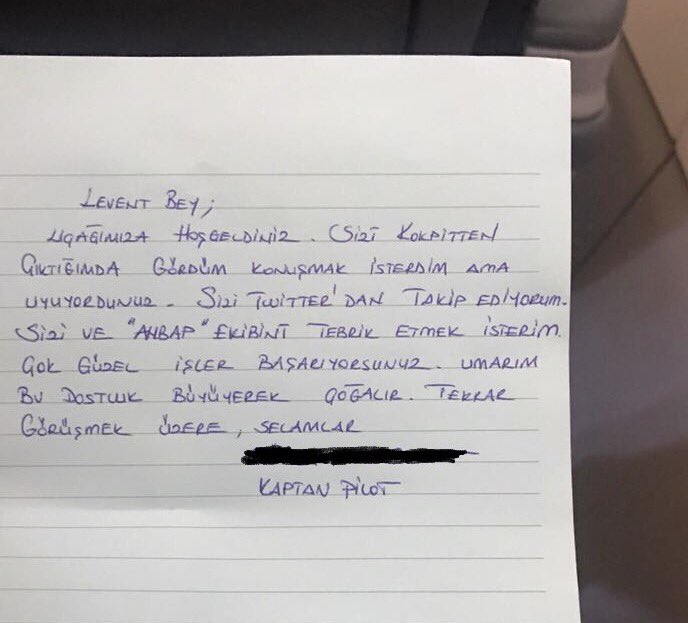 LEVENT BEY;
UÇAĞIMIZA HOŞGELDİNİZ. SİZİ KOKPİTTEN
ÇIKTIĞIMDA GÖRDÜM KONUŞMAK İSTERDİM AMA
UYUYORDUNUZ. SİZİ TWITTER'DAN TAKİP EDİYORUM.
SİZİ VE "AHBAP" EKİBİNİ TEBRİK ETMEK İSTERİM.
ÇOK GÜZEL İŞLER BAŞARIYORSUNUZ. UMARIM
BU DOSTLUK BÜYÜYEREK ÇOĞALIR. TEKRAR
GÖRÜŞMEK ÜZERE, SELAMLAR
KAPTAN PİLOT